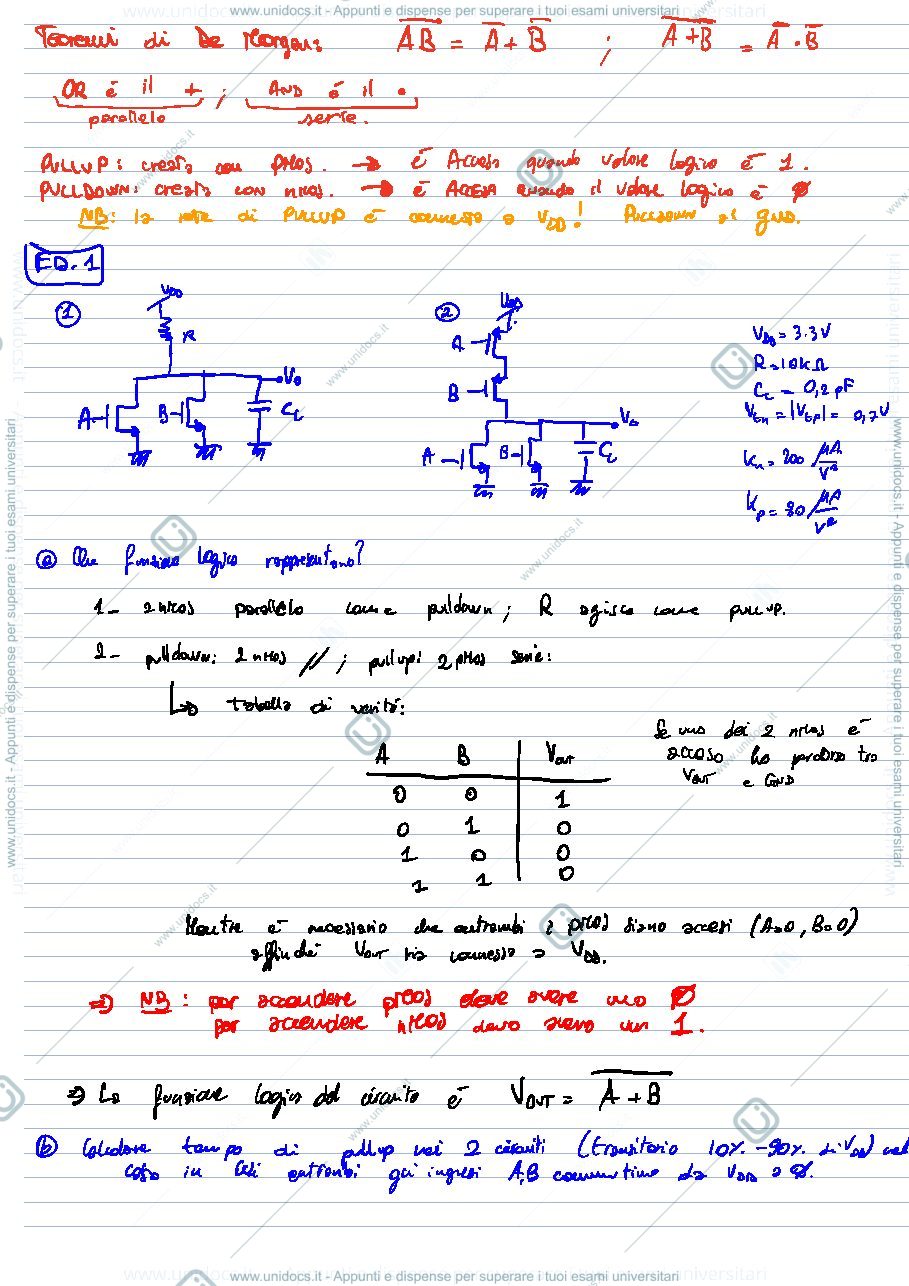 www.unidocs.it - Appunti e dispense per superare i tuoi esami universitari
Teoremi di De Morgan: \overline{AB} = \overline{A} + \overline{B} ; \overline{A+B} = \overline{A} · \overline{B}
OR è il + ; AND è il •
parallelo serie.
PULLUP: creata con PMOS. → è Accesa quando valore logico è 1.
PULLDOWN: creata con nMOS. → è Accesa quando il valore logico è 0
NB: la rete di PULLUP è connessa a VDD! Pulldown al gnd.
ES. 1
① VDD R V0 A B CL
② VDD A B V0 A B CL
VDD = 3.3V
R = 10kΩ
CL = 0,2 pF
Vtn = |Vtp| = 0,7V
Kn = 200 μA/V²
Kp = 80 μA/V²
ⓐ Che funzione logica rappresentano?
1- 2 nMOS parallelo come pulldown; R agisce come pullup.
2- pulldown: 2 nMOS //; pullup: 2 pMOS serie:
↳ tabella di verità:
A B Vout
0 0 1
0 1 0
1 0 0
1 1 0
Se uno dei 2 nMOS è
acceso ho percorso tra
Vout e GND
Mentre è necessario che entrambi i pMOS siano accesi (A=0, B=0)
affinché Vout sia connesso a VDD.
⇒ NB: per accendere pMOS deve avere uno 0
per accendere nMOS devo avere un 1.
⇒ La funzione logica del circuito è VOUT = \overline{A + B}
ⓑ Calcolare tempo di pullup nei 2 circuiti (transitorio 10% - 90% di VDD) nel
caso in cui entrambi gli ingressi A,B commutino da VDD a 0.
www.unidocs.it - Appunti e dispense per superare i tuoi esami universitari